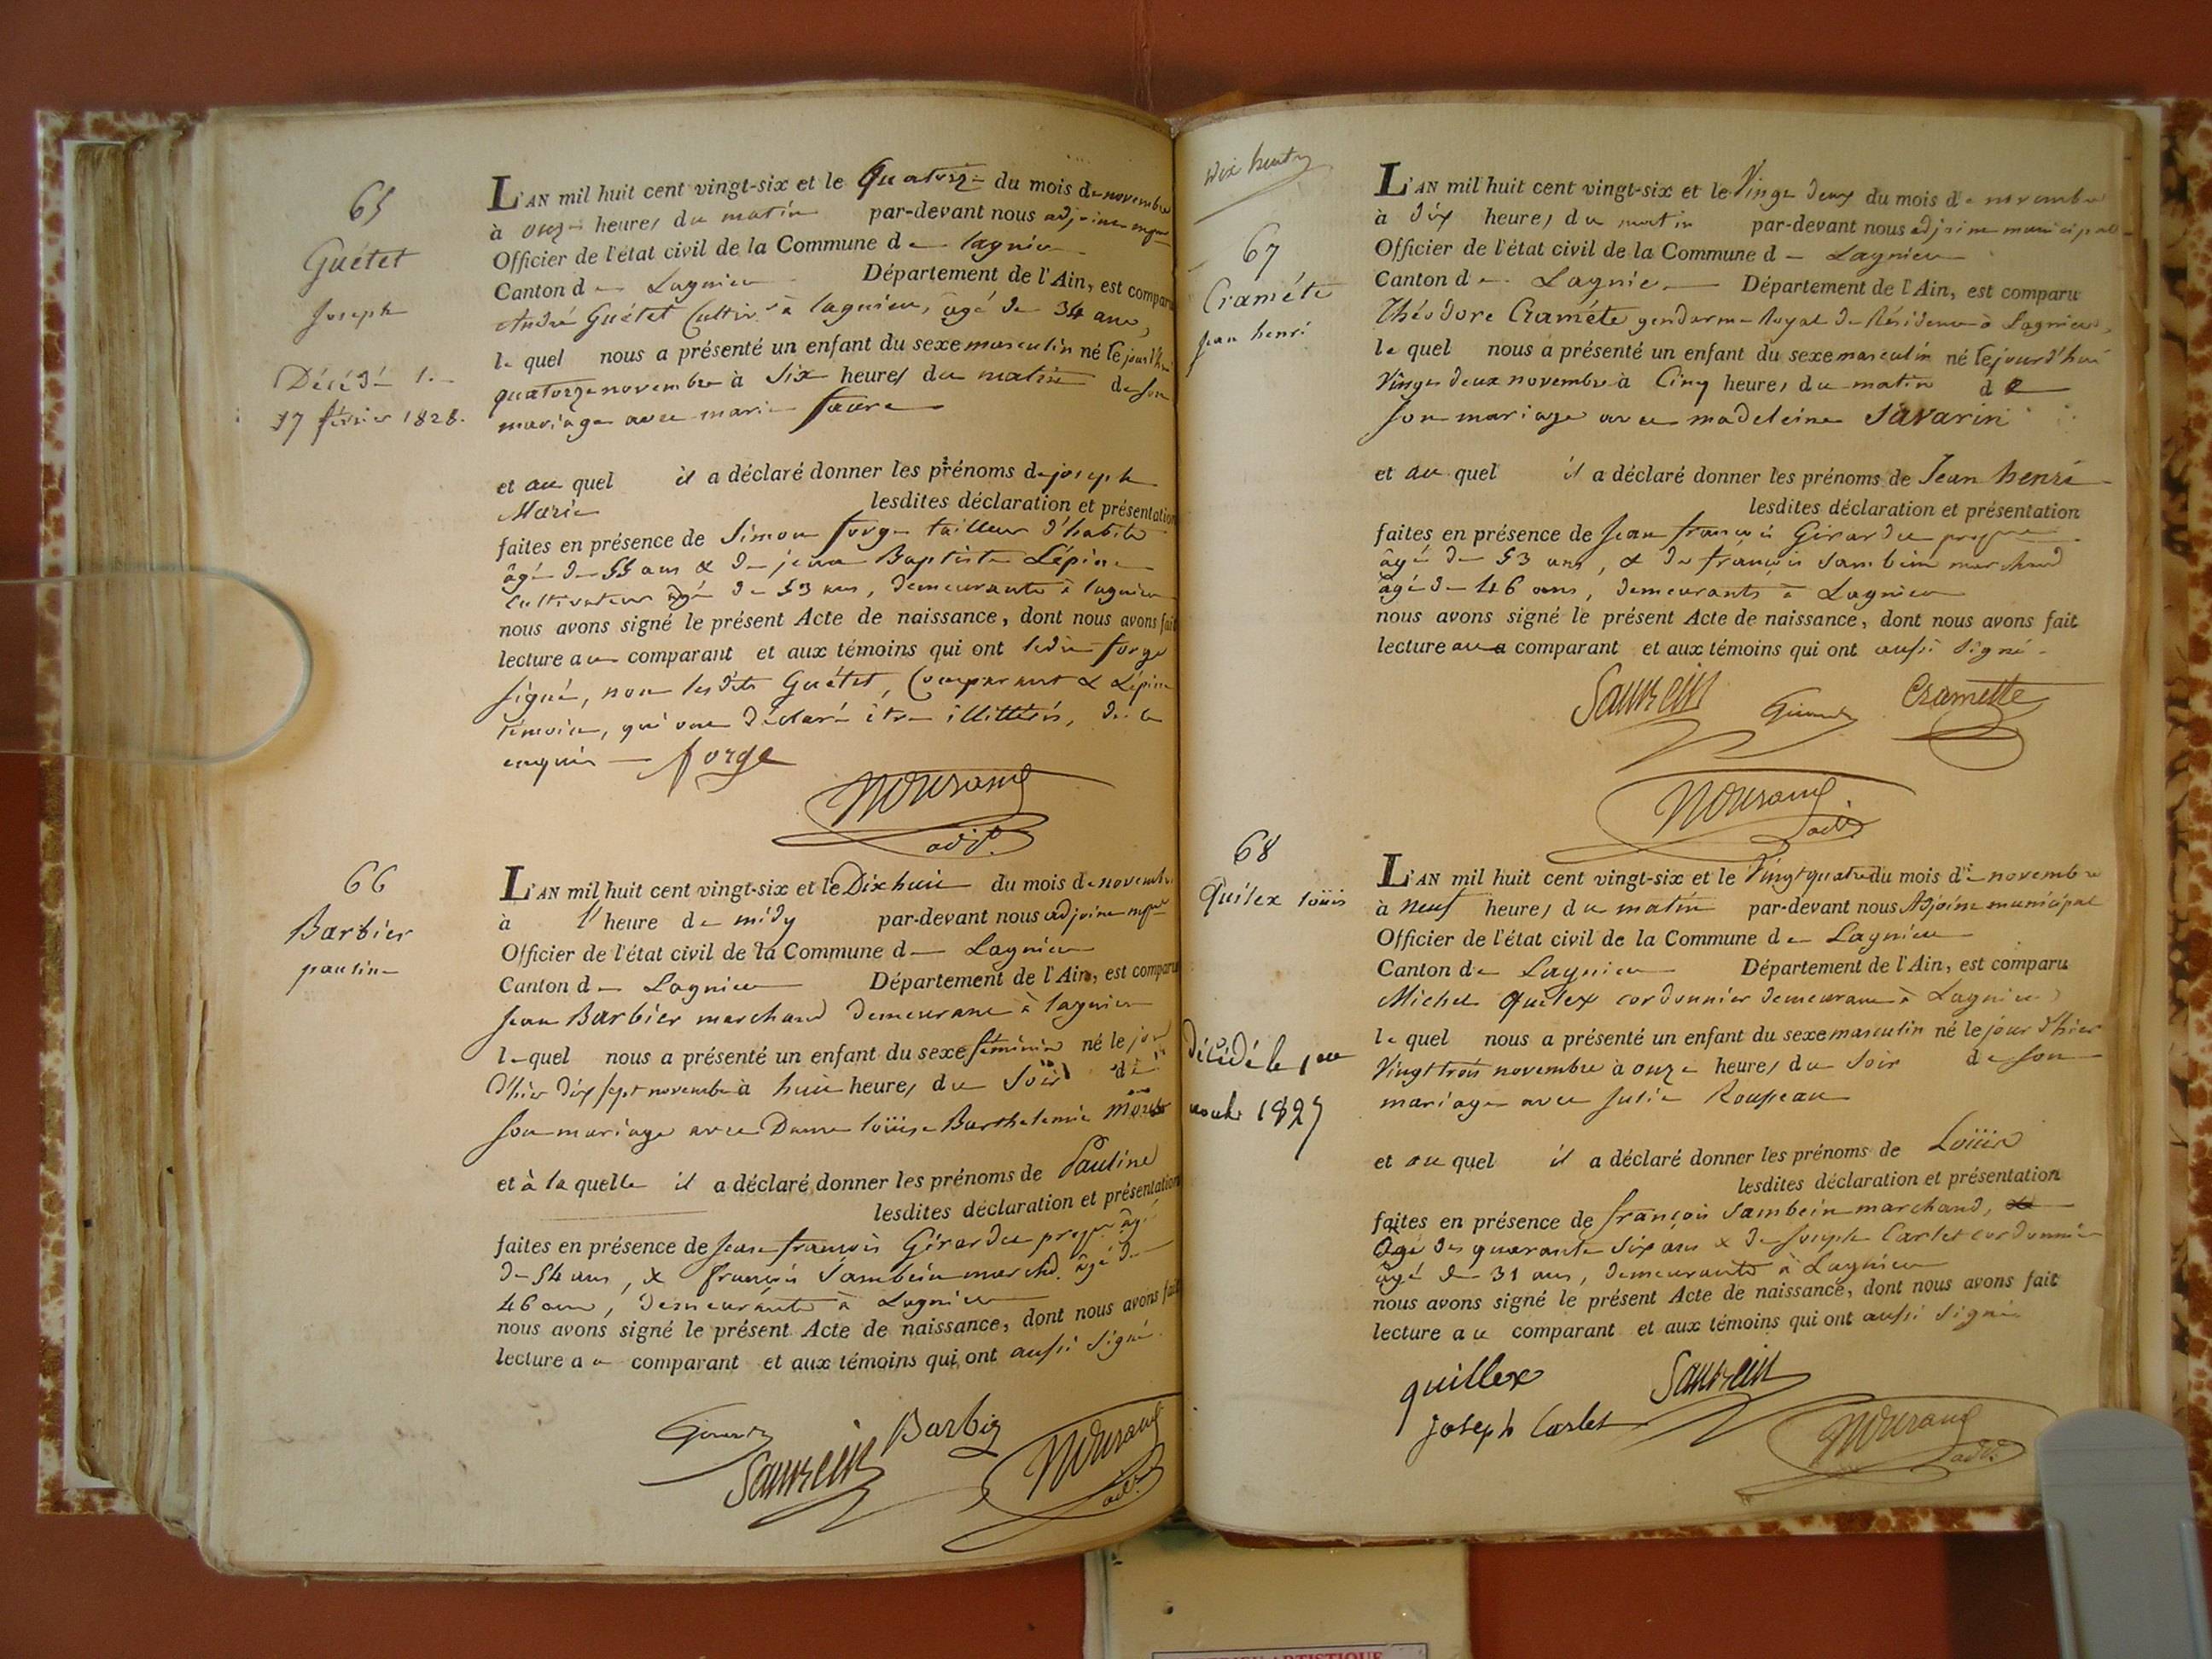 65
Guétet
joseph
Décédé le
17 février 1828.
L'AN mil huit cent vingt-six et le Quatorze du mois de novembre
à onze heures du matin par-devant nous adjoint mpal
Officier de l'état civil de la Commune de lagnieu
Canton de Lagnieu Département de l'Ain, est comparu
André Guétet Cultivr à lagnieu, âgé de 34 ans,
lequel nous a présenté un enfant du sexe masculin né le jourd'hui
quatorze novembre à Six heures du matin de son
mariage avec marie faure
et au quel il a déclaré donner les prénoms de joseph
Marie lesdites déclaration et présentation
faites en présence de Simon forge tailleur d'habits
âgé de 55 ans & de jean Baptiste Lépine
Cultivateur âgé de 53 ans, demeurants à lagnieu
nous avons signé le présent Acte de naissance, dont nous avons fait
lecture au comparant et aux témoins qui ont ledit forge
signé, non lesdits Guétet, Comparant & Lépine
témoin, qui ont déclaré être illittérés, de ce
enquis forge
adjt.
66
Barbier
pauline
L'AN mil huit cent vingt-six et le Dix huit du mois de novembre
à l'heure de midy par-devant nous adjoint mpal
Officier de l'état civil de la Commune de Lagnieu
Canton de Lagnieu Département de l'Ain, est comparu
Jean Barbier marchand demeurant à lagnieu
lequel nous a présenté un enfant du sexe féminin né le jour
d'hier dix sept novembre à huit heures du Soir de
son mariage avec Dame loüise Barthelemie
et à la quelle il a déclaré donner les prénoms de Pauline
lesdites déclaration et présentation
faites en présence de Jean françois Girardu propre âgé
de 54 ans, & françois Sambein marchd. âgé de
46 ans, demeurants à Lagnieu
nous avons signé le présent Acte de naissance, dont nous avons fait
lecture au comparant et aux témoins qui ont aussi signé.
Barbier
adjt.
dix huit
67
Craméte
jean henri
L'AN mil huit cent vingt-six et le Vingt deux du mois de novembre
à dix heures du matin par-devant nous adjoint municipal
Officier de l'état civil de la Commune de Lagnieu
Canton de Lagnieu Département de l'Ain, est comparu
Théodore Craméte gendarme Royal de Résidence à Lagnieu,
lequel nous a présenté un enfant du sexe masculin né le jourd'hui
Vingt deux novembre à Cinq heures du matin de
son mariage avec madeleine Savarin
et au quel il a déclaré donner les prénoms de Jean henri
lesdites déclaration et présentation
faites en présence de Jean françois Girardu propre
âgé de 53 ans, & de françois Sambein marchand
âgé de 46 ans, demeurants à Lagnieu
nous avons signé le présent Acte de naissance, dont nous avons fait
lecture au comparant et aux témoins qui ont aussi signé
Cramette
adjt.
68
Quilex loüis
décédé le 1er
août 1827
L'AN mil huit cent vingt-six et le Vingt quatre du mois de novembre
à neuf heures du matin par-devant nous Adjoint municipal
Officier de l'état civil de la Commune de Lagnieu
Canton de Lagnieu Département de l'Ain, est comparu
Michel Quilex cordonnier demeurant à Lagnieu
lequel nous a présenté un enfant du sexe masculin né le jour d'hier
Vingt trois novembre à onze heures du Soir de son
mariage avec Julie Rousseau
et au quel il a déclaré donner les prénoms de Loüis
lesdites déclaration et présentation
faites en présence de françois Sambein marchand,
âgé de quarante six ans & de Joseph Carlet cordonnier
âgé de 31 ans, demeurants à Lagnieu
nous avons signé le présent Acte de naissance, dont nous avons fait
lecture au comparant et aux témoins qui ont aussi signé
quillex
Joseph Carlet
adjt.
ARTISTIQUE